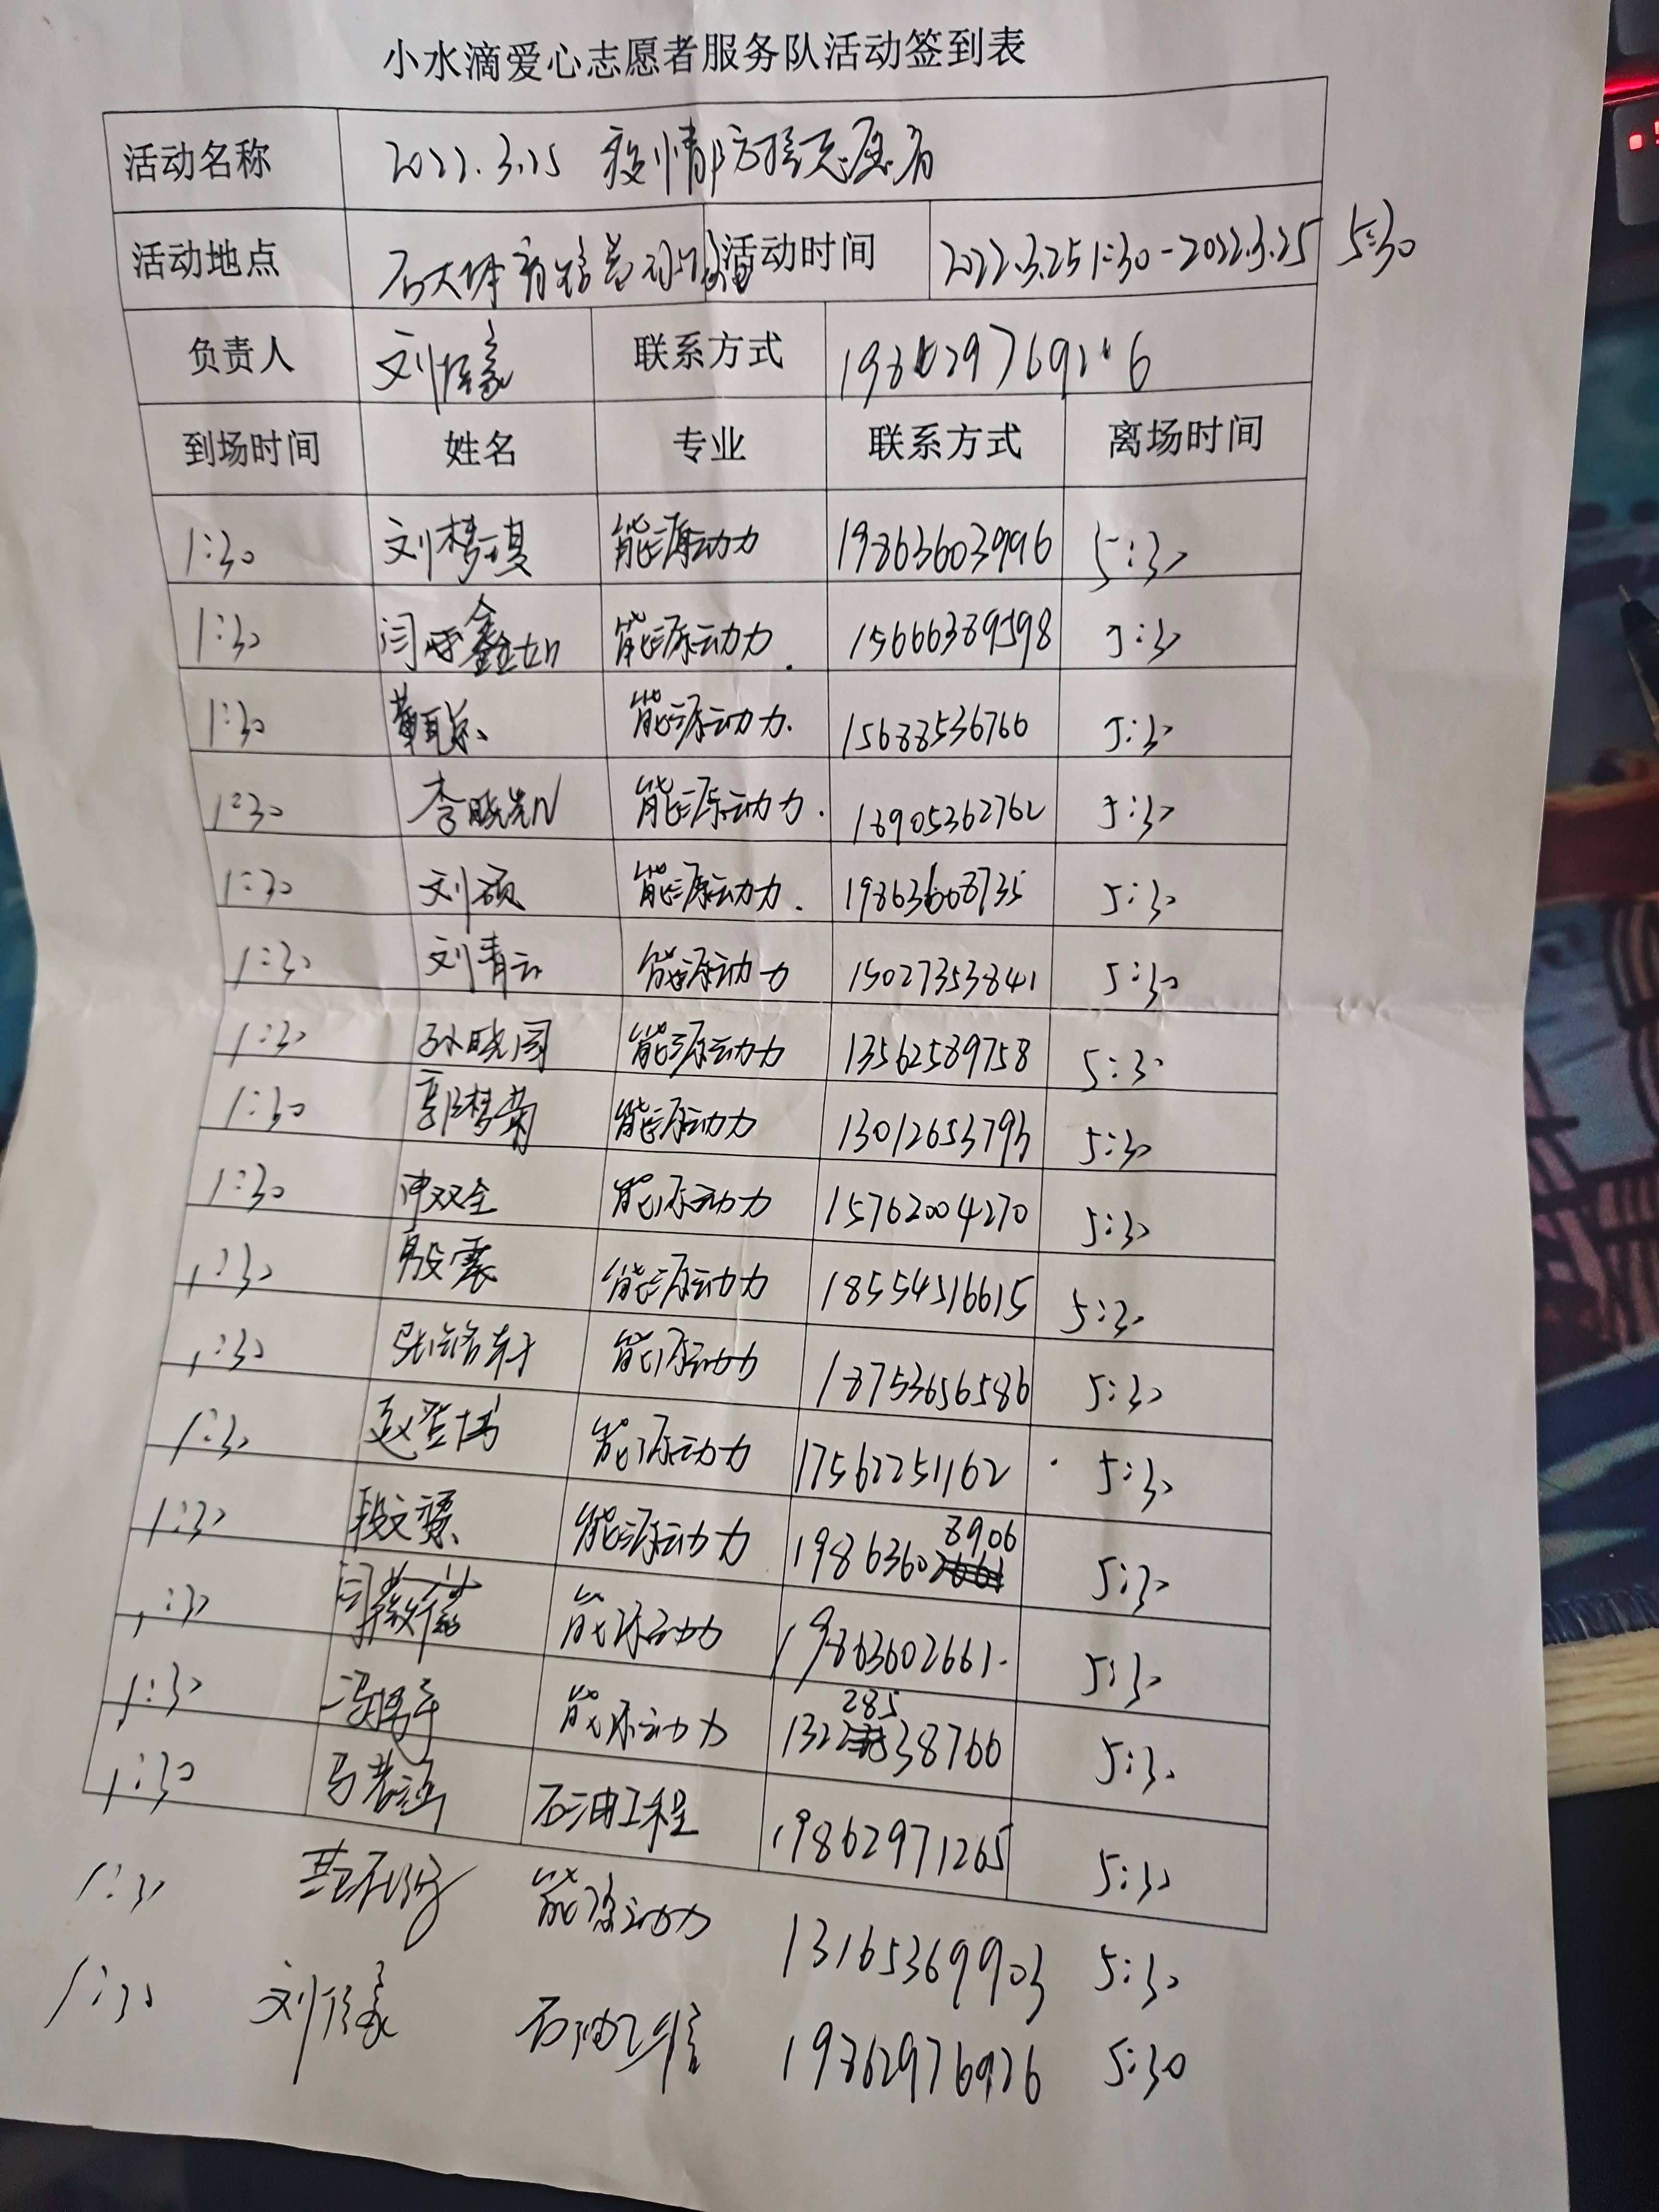 小水滴爱心志愿者服务队活动签到表
活动名称 2022.3.25 疫情防控志愿者
活动地点 石大体育馆 活动时间 2022.3.25 1:30-2022.3.25 5:30
负责人 刘 联系方式
到场时间 姓名 专业 联系方式 离场时间
1:30 刘梦琪 能源动力 19863603996 5:30
1:30 能源动力 15666389598 5:30
1:30 能源动力 15688536760 5:30
1:30 李晓 能源动力 18905362762 5:30
1:30 刘硕 能源动力 19863608735 5:30
1:30 刘青云 能源动力 15027353841 5:30
1:30 孙晓同 能源动力 13562589758 5:30
1:30 郭梦菊 能源动力 13012653793 5:30
1:30 双全 能源动力 15762004270 5:30
1:30 殷震 能源动力 18554516615 5:30
1:30 张 能源动力 18753656586 5:30
1:30 赵登博 能源动力 17562251162 5:30
1:30 段文 能源动力 19863608906 5:30
1:30 闫 能源动力 19863602661 5:30
1:30 冯 能源动力 13228538766 5:30
1:30 马 石油工程 19862971265 5:30
1:30 能源动力 13165369903 5:30
1:30 刘 石油工程 19862976926 5:30